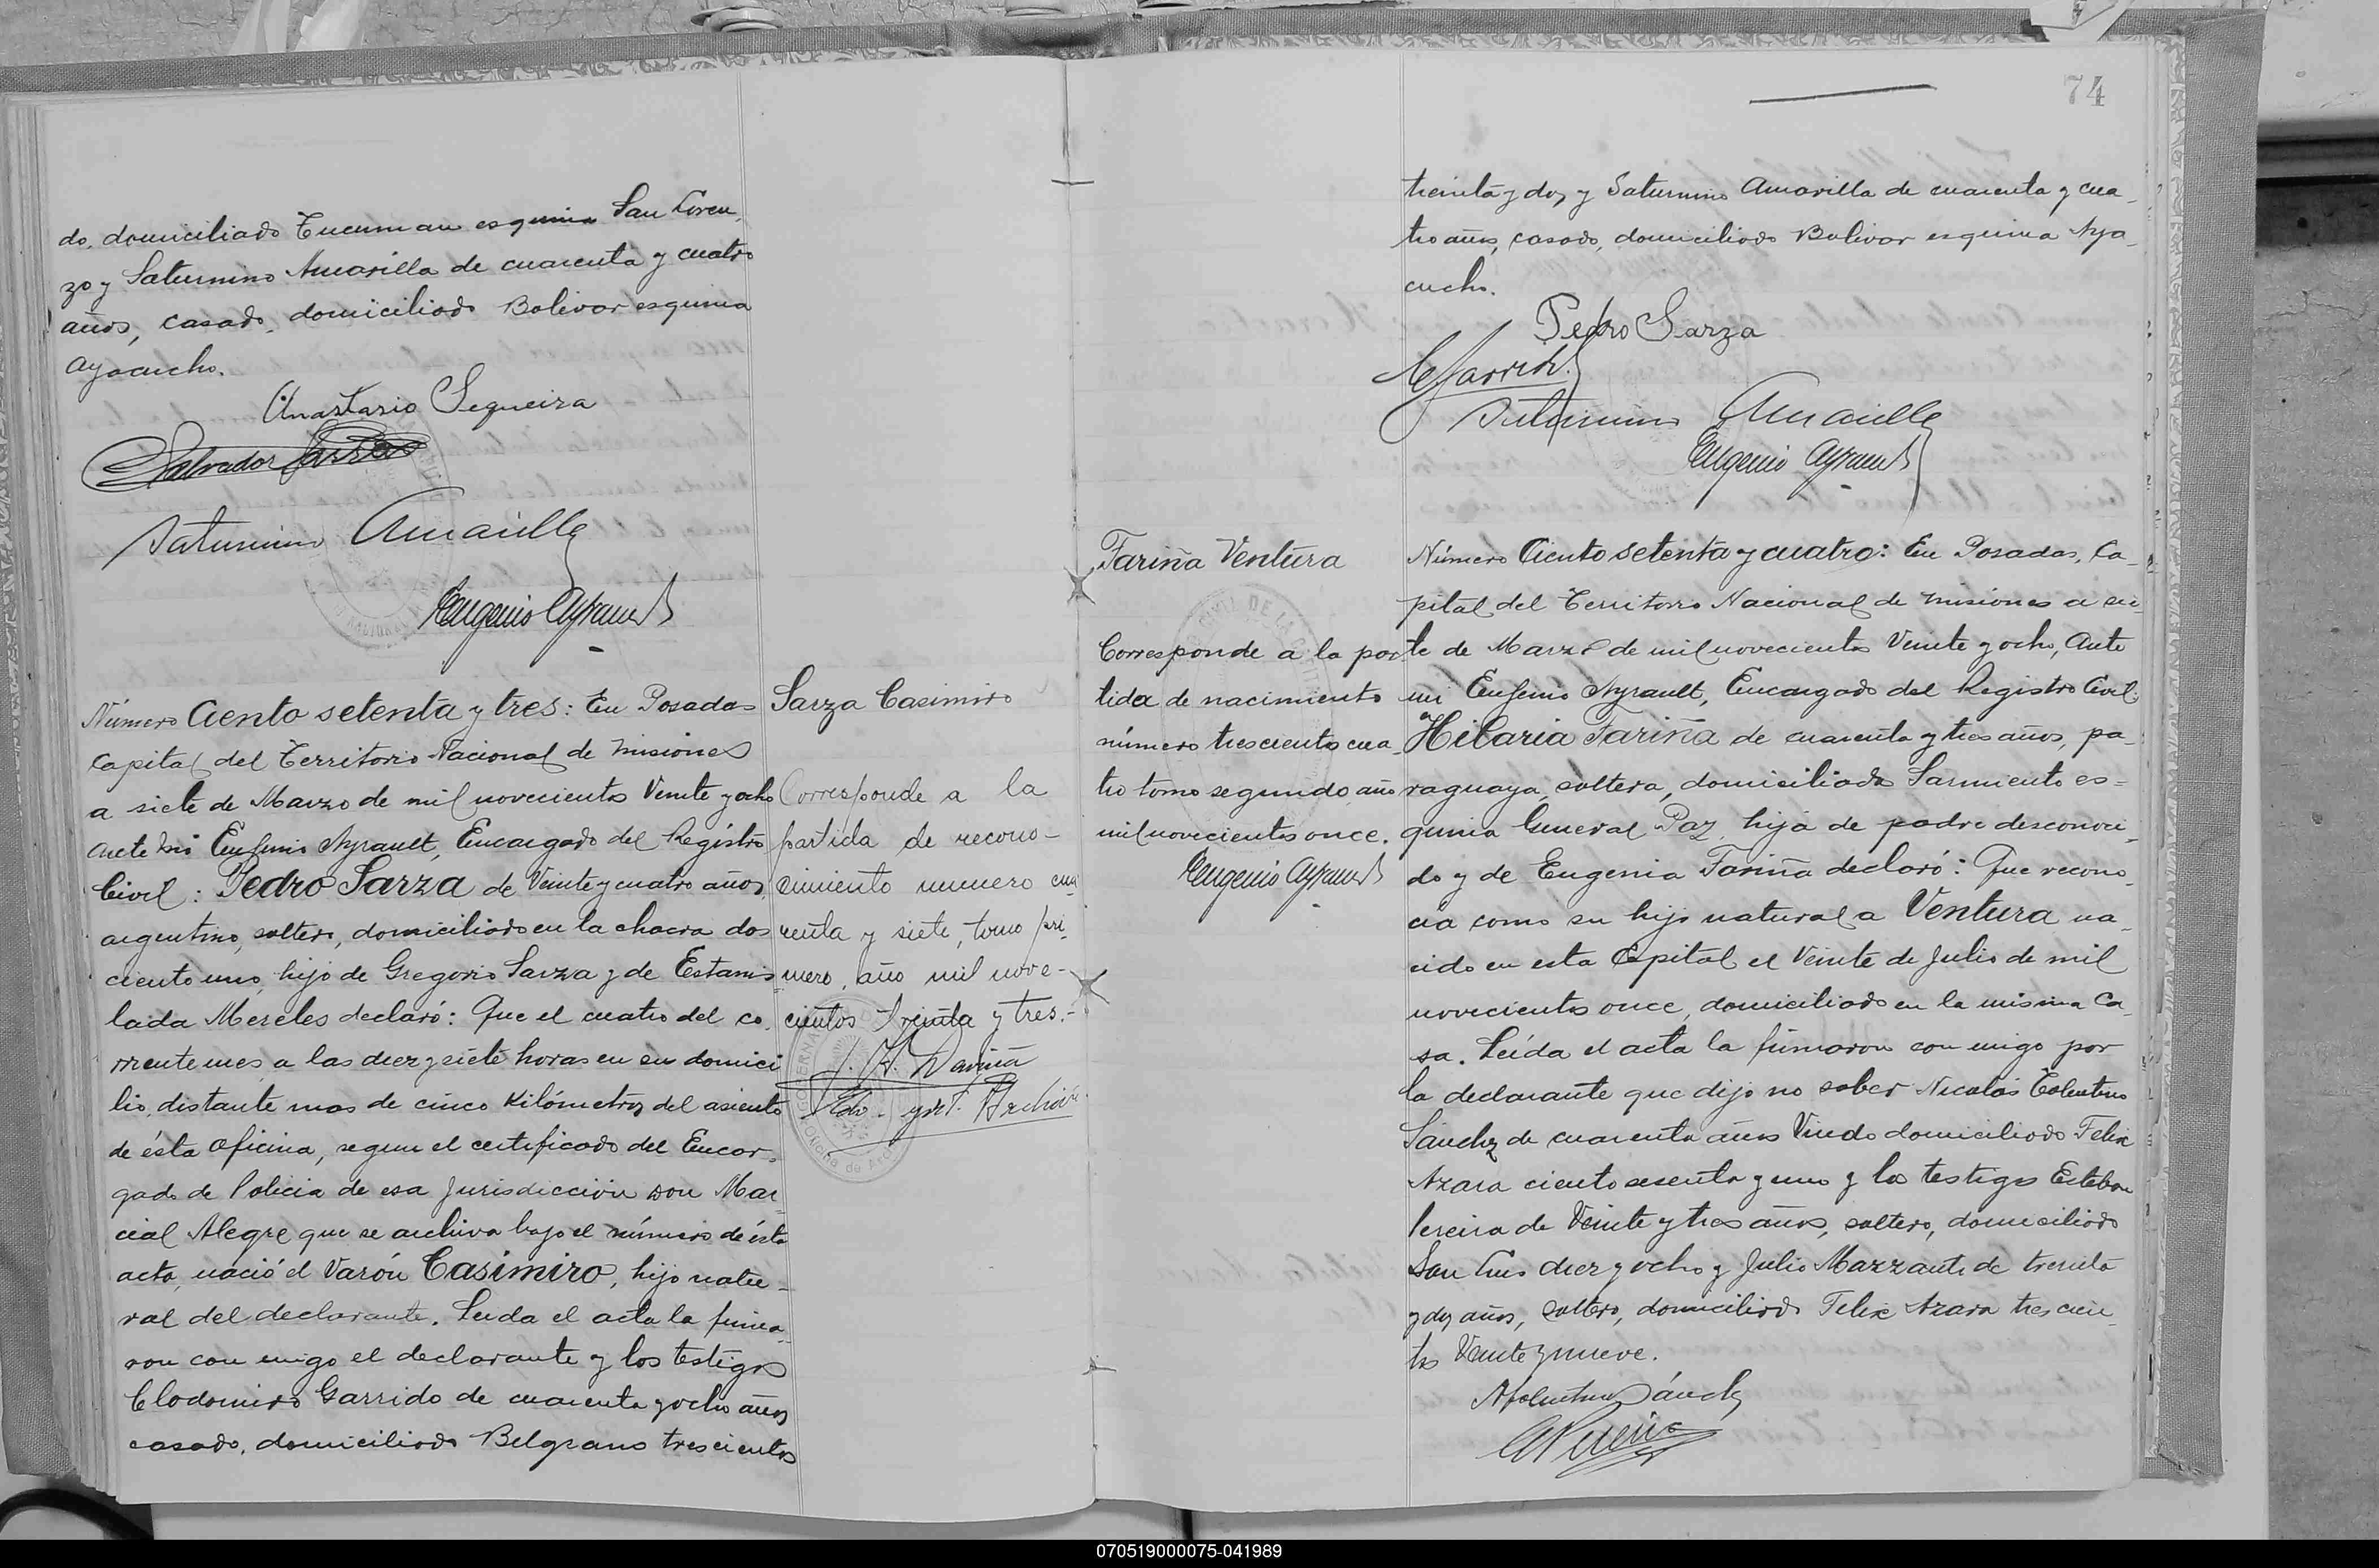 do, domiciliado Tucuman esquina San Loren
zo y Saturnino Amarilla de cuarenta y cuatro
años, casado, domiciliado Bolivar esquina
Ayacucho.
Anastasio Sequeira
Salvador
Saturnino Amarilla
Eugenio Ayrault
Número Ciento setenta y tres: En Posadas
Capital del Territorio Nacional de Misiones
a siete de Marzo de mil novecientos Veinte y ocho
Ante mi Eugenio Ayrault, Encargado del Registro
Civil: Pedro Sarza de Veinte y cuatro años,
argentino, soltero, domiciliado en la chacra dos
ciento uno, hijo de Gregorio Sarza y de Estanis
lada Mereles declaró: Que el cuatro del co
rriente mes a las diez y siete horas en su domici
lio, distante mas de cinco Kilómetros del asiento
de ésta oficina, segun el certificado del Encar-
gado de Policia de esa Jurisdicción Don Mar
cial Alegre que se archiva bajo el número de ésta
acta, nació el Varón Casimiro, hijo natu-
ral del declarante. Leida el acta la firma-
ron con migo el declarante y los testigos
Clodomiro Garrido de cuarenta y ocho años
casado, domiciliado Belgrano trescientos
Sarza Casimiro
Corresponde a la
partida de recono-
cimiento numero cua
renta y siete, tomo pri-
mero, año mil nove-
cientos treinta y tres.-
74
treinta y dos y Saturnino Amarilla de cuarenta y cua-
tro años, casado, domiciliado Bolivar esquina Aya-
cucho.
Pedro Sarza
C Garrido
Saturnino Amarilla
Eugenio Ayrault
Fariña Ventura
Corresponde a la par
tida de nacimiento
número trescientos cua-
tro tomo segundo, año
mil novecientos once.
Eugenio Ayrault
Número Ciento setenta y cuatro: En Posadas, Ca-
pital del Territorio Nacional de Misiones a sie-
te de Marzo de mil novecientos Veinte y ocho, Ante
mi Eugenio Ayrault, Encargado del Registro Civil:
Hilaria Fariña de cuarenta y tres años, pa-
raguaya, soltera, domiciliada Sarmiento es=
quina General Paz, hija de padre desconoci-
do y de Eugenia Fariña declaró: Que recono-
cia como su hijo natural a Ventura na-
cido en esta Capital el Veinte de Julio de mil
novecientos once, domiciliado en la misma Ca-
sa. Leída el acta la firmaron con migo por
la declarante que dijo no saber Nicolás Tolentino
Sánchez de cuarenta años Viudo domiciliado Felix
Azara ciento sesenta y uno y los testigos Esteban
Pereira de Veinte y tres años, soltero, domiciliado
San Luis diez y ocho y Julio Mazzanti de treinta
y dos años, soltero, domiciliado Felix Azara trescien
tos Veinte y nueve.
N Tolentino Sánchez
E Pereira
070519000075-041989